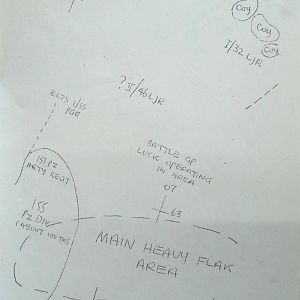 Coy
Coy
Coy
I/32 LJR
? II/46 LJR
ELTS 1/SS
PGR
BATTLE GP
LUCK OPERATING
IN AREA
07
63
1SS PZ
ARTY REGT
1SS
PZ DIV
(ABOUT 100 TKS)
MAIN HEAVY FLAK
AREA